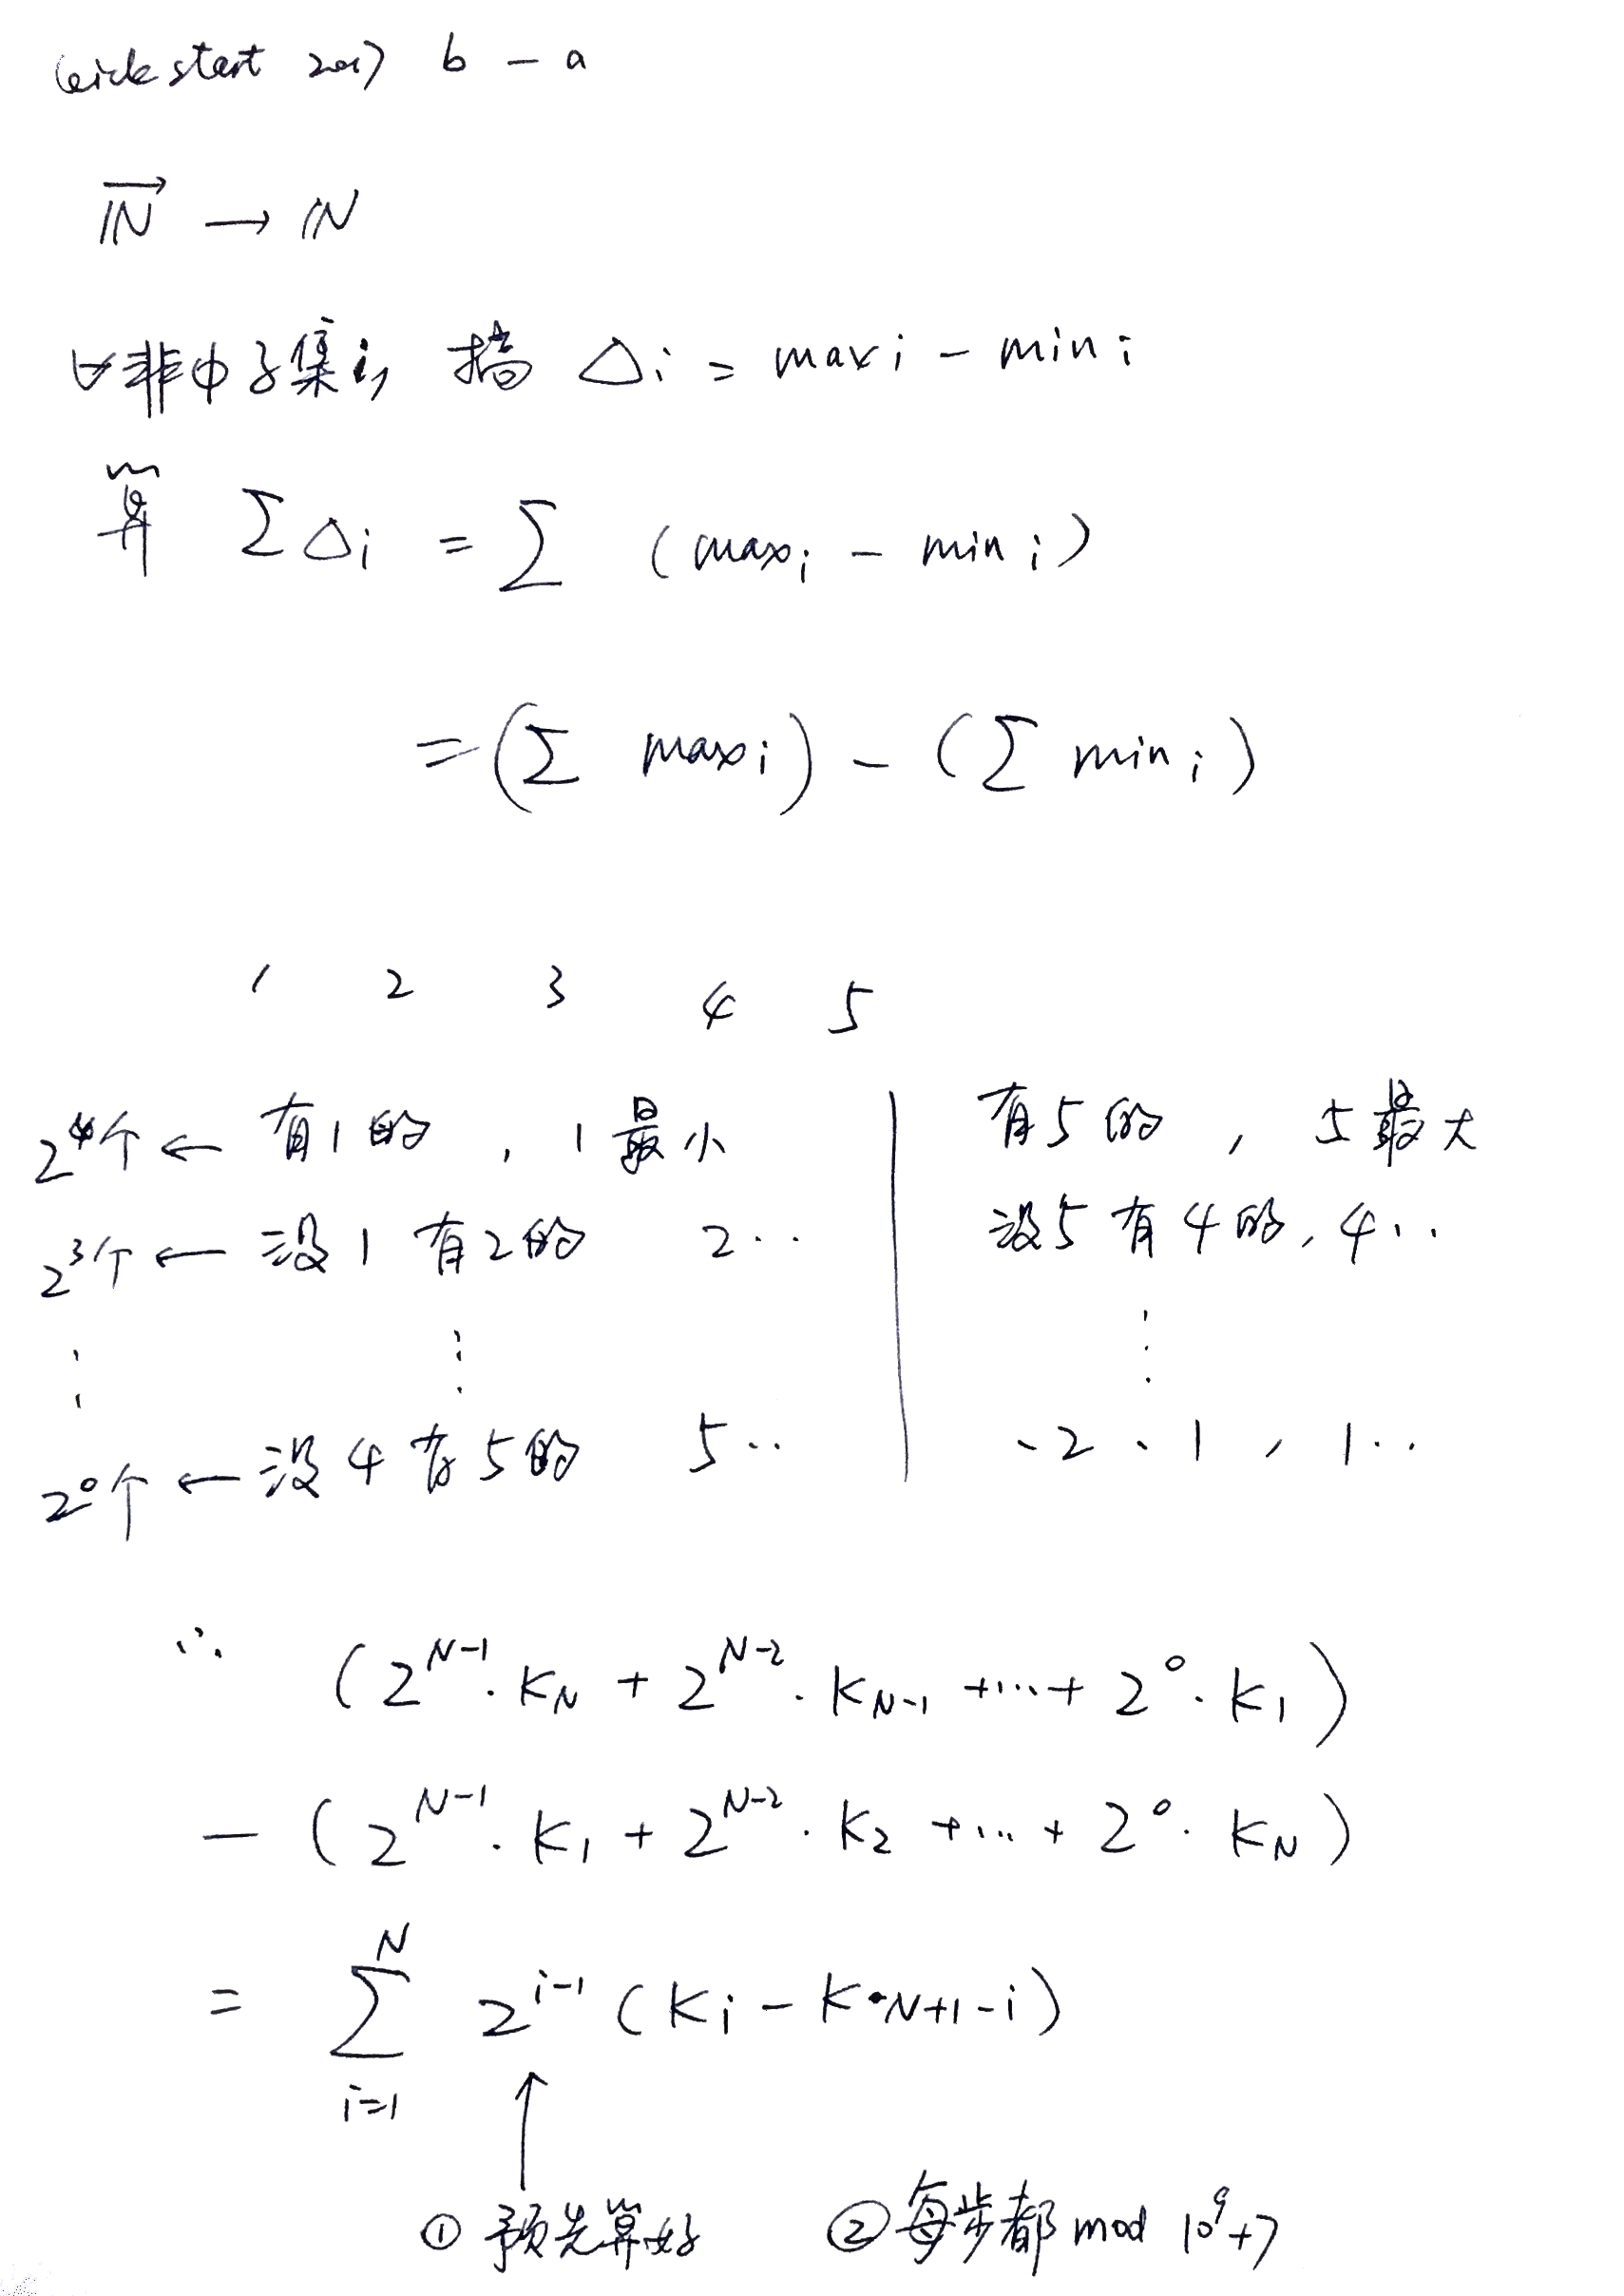 kickstart b - a
IN → IN
∀非中子集i, 搞 Δi = maxi - mini
算 ΣΔi = Σ (maxi - mini)
= (Σ maxi) - (Σ mini)
1 2 3 4 5
2⁴个 ← 有1的, 1最小
2³个 ← 没1有2的 2··
⋮ ⋮
2⁰个 ← 没4有5的 5··
有5的, 5最大
没5有4的, 4··
⋮
、2、1, 1··
∴ (2^(N-1)·K_N + 2^(N-2)·K_(N-1) +···+ 2⁰·K₁)
- (2^(N-1)·K₁ + 2^(N-2)·K₂ +···+ 2⁰·K_N)
= Σ_(i=1)^N 2^(i-1) (K_i - K_(N+1-i))
↑
① 预先算好 ② 每步都 mod 10⁹+7